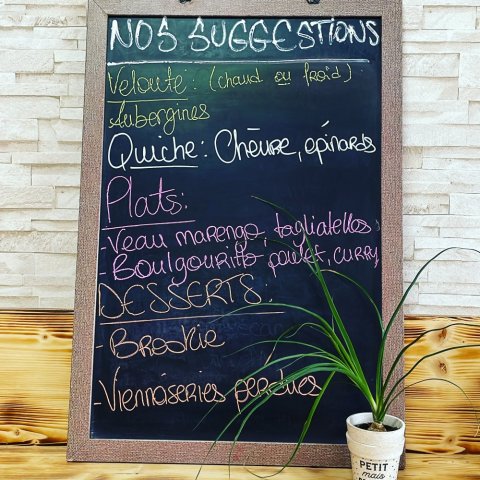 NOS SUGGESTIONS
Velouté: (chaud ou froid)
Aubergines
Quiche: Chèvre, épinards
Plats:
-Veau marengo, tagliatelles
-Boulgouritto poulet, curry
DESSERTS:
-Brookie
-Viennoiseries perdues
PETIT
mais